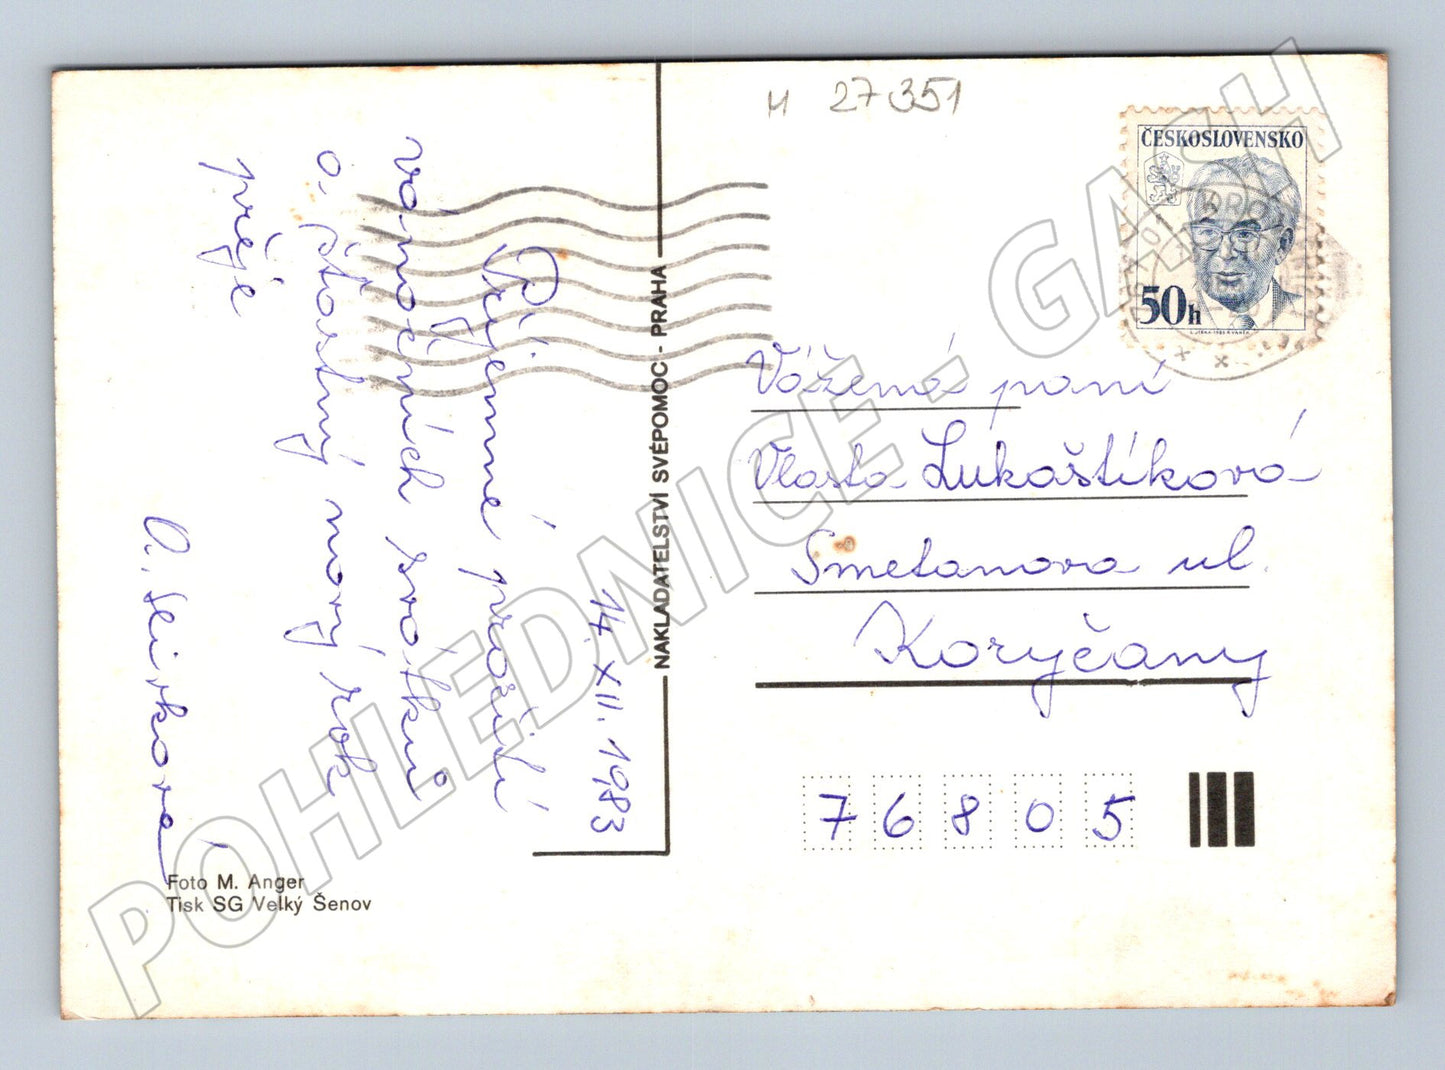 H 27351
ČESKOSLOVENSKO
50h
14. XII. 1983
Příjemné prožití
vánočních svátků
a šťastný nový rok
přeje
NAKLADATELSTVÍ SVÉPOMOC - PRAHA
Vážená paní
Vlasta Lukaštíková
Smetanova ul.
Koryčany
76805
Foto M. Anger
Tisk SG Velký Šenov
POHLEDNICE - GASH